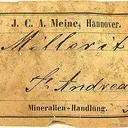 J. C. A. Meine, Hannover.
Millerit
St. Andrea
Mineralien-Handlung.